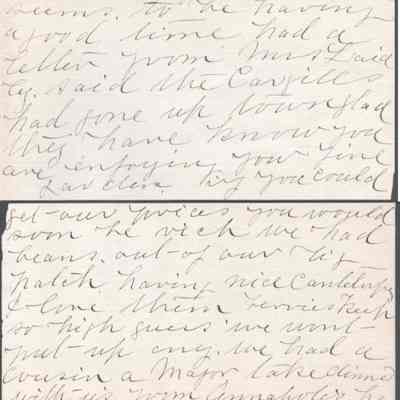 seems. to be having
a good time had a
letter from Mrs Laid
ty. said the Cargills
had gone up town glad
they have know you
are enjoying your fine
Garden. if you could
get our prices you would
soon be rich we had
beans. out of our big
patch having nice Cantelopes
I love them berries keep
so high guess we wont
put up any. we had a
Cousin a Major take dinner
with us from Annapolis he